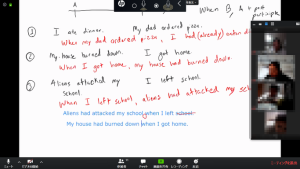 A
When B, A + past
participle
① I ate dinner. My dad ordered pizza.
When my dad ordered pizza, I had (already) eaten
② My house burned down. I got home
When I got home, my house had burned down.
③ Aliens attacked my school I left school
When I left school, aliens had attacked my
Aliens had attacked my school when I left school
My house had burned down when I got home.